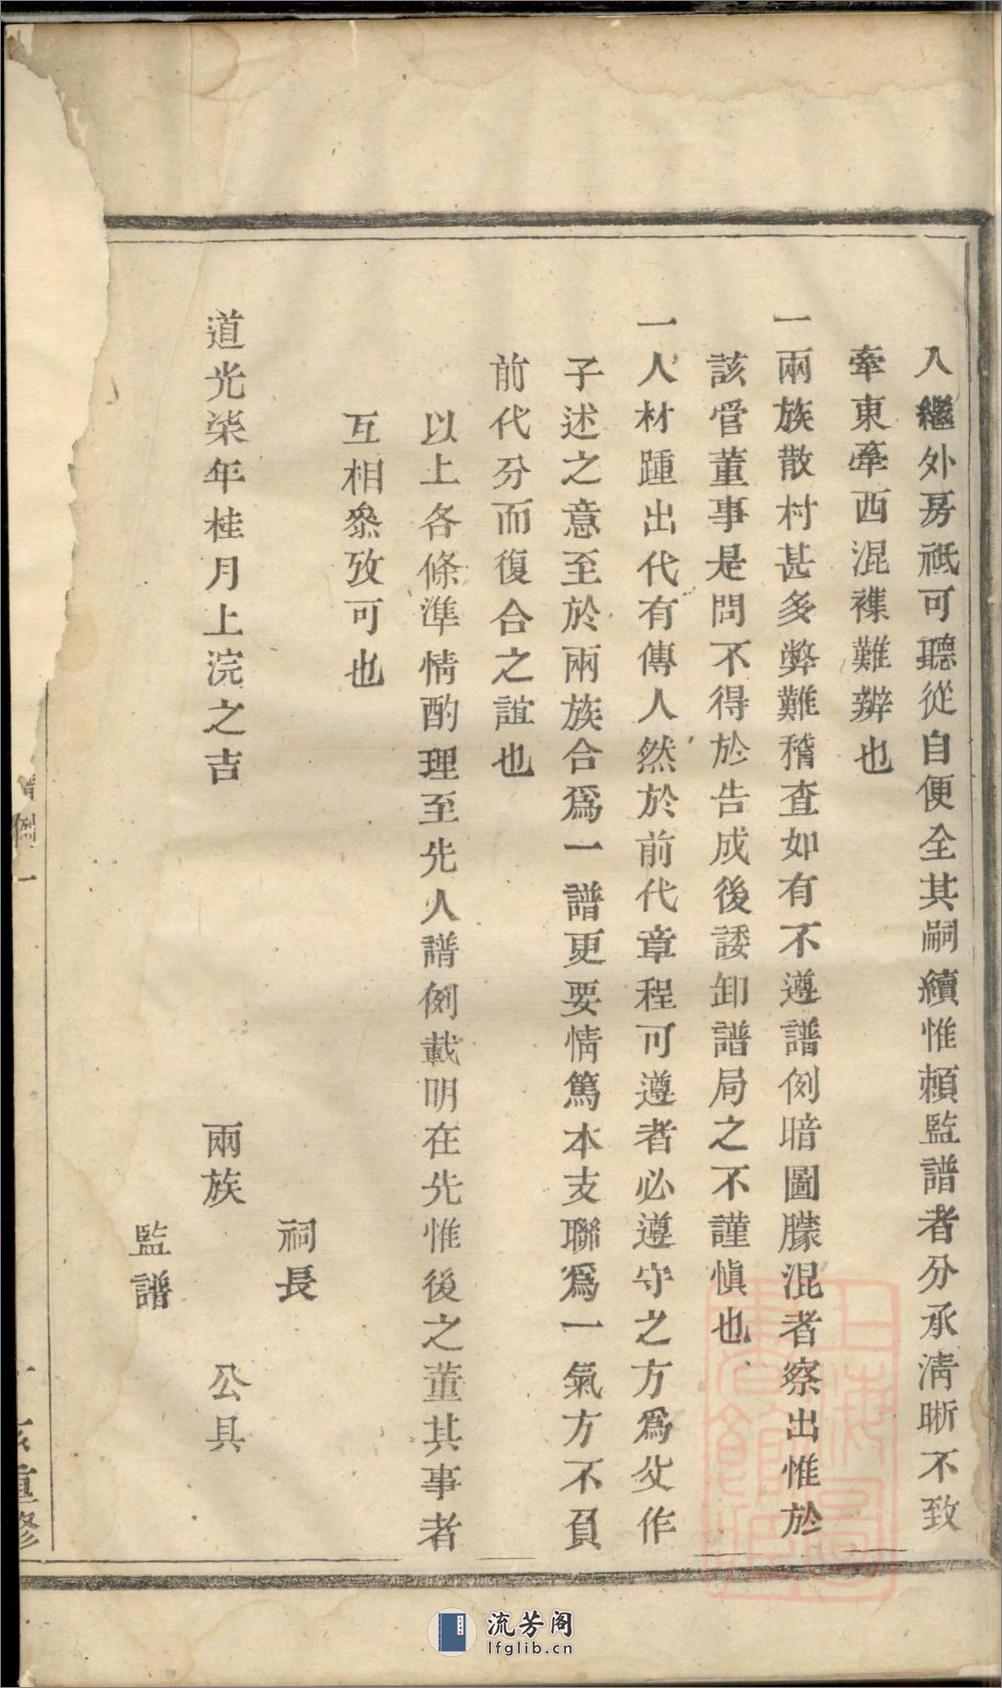 入繼外房祗可聽從自便全其嗣續惟賴監譜者分承淸晣不致
牽東牽西混襍難辨也
一兩族散村甚多弊難稽查如有不遵譜例暗圖朦混者察出惟於
該管董事是問不得於告成後諉卸譜局之不謹愼也
一人材踵出代有傳人然於前代章程可遵者必遵守之方爲父作
子述之意至於兩族合爲一譜更要情篤本支聯爲一氣方不負
前代分而復合之誼也
以上各條準情酌理至先人譜例載明在先惟後之董其事者
互相叅攷可也
祠長
道光柒年桂月上浣之吉 兩族 公具
監譜
例一
重修
上海圖書館藏
流芳阁
lfglib.cn